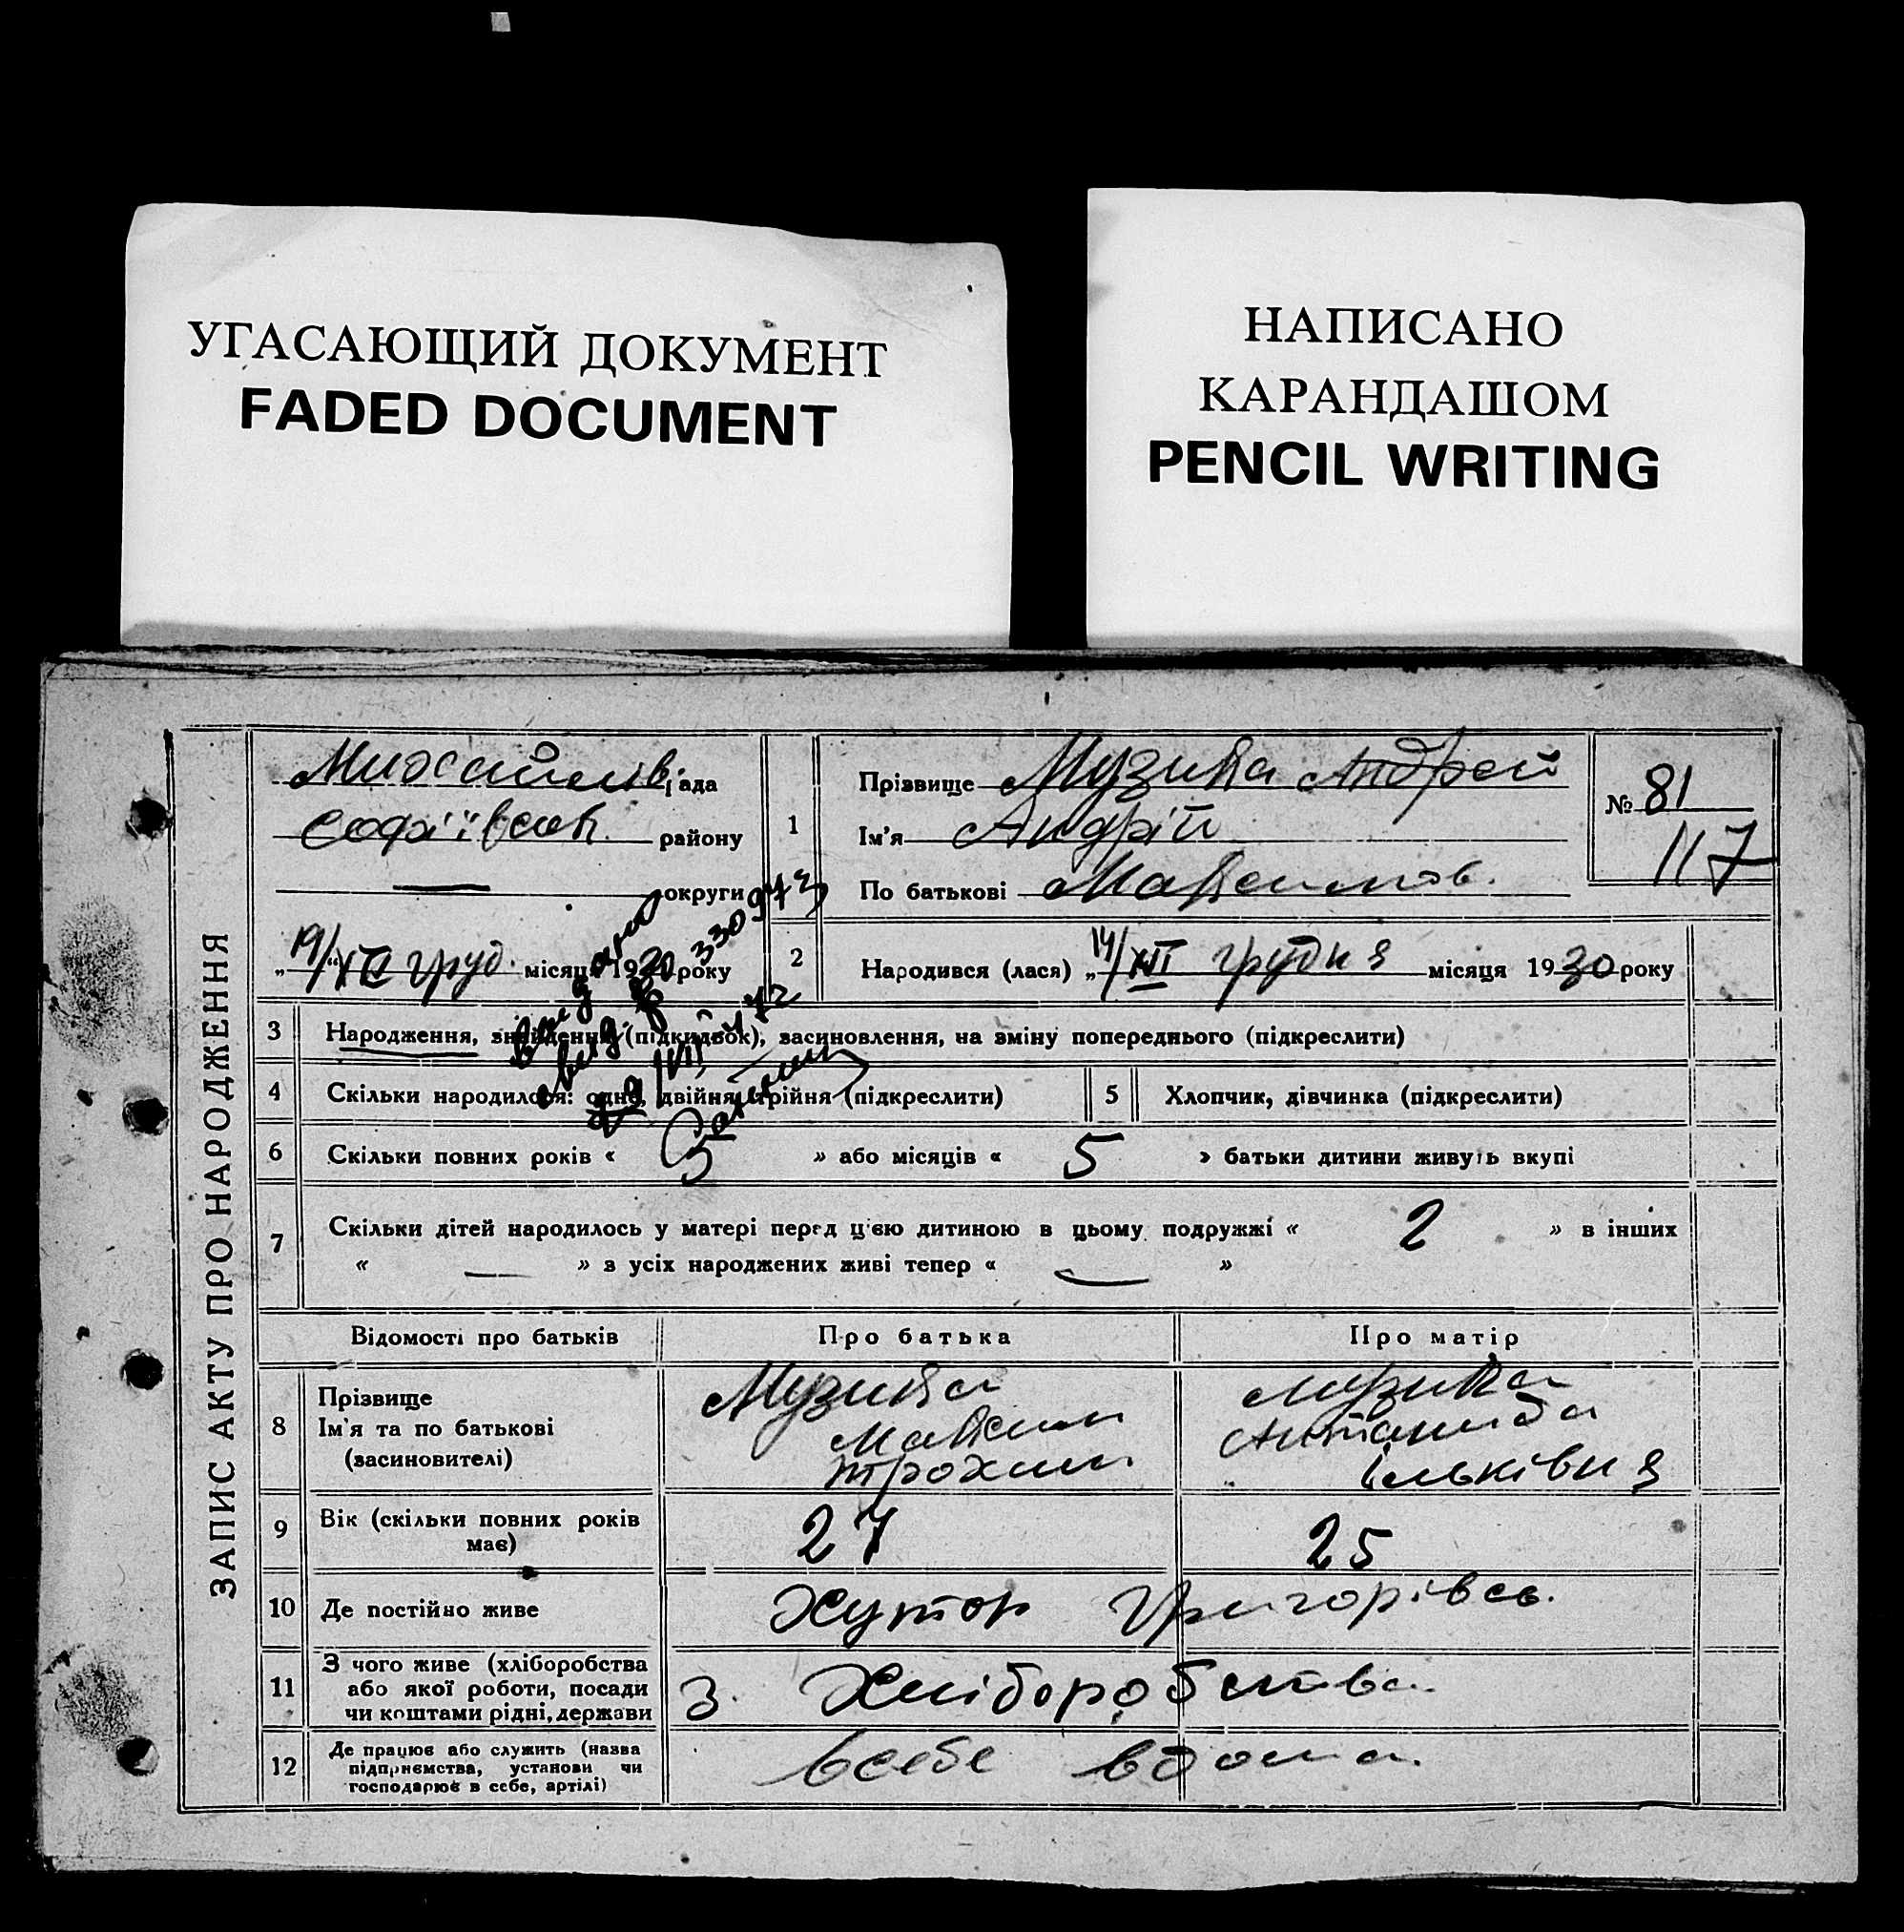 УГАСАЮЩИЙ ДОКУМЕНТ
FADED DOCUMENT
НАПИСАНО
КАРАНДАШОМ
PENCIL WRITING
ЗАПИС АКТУ ПРО НАРОДЖЕННЯ
Михайлів рада
Софіївськ. району
округи
„19/“ XII груд. місяця 1930 року
1
Прізвище Музика Андрей
Ім'я Андрій
По батькові Максимов.
№ 81
117
2
Народився (лася) „14/XII грудня місяця 1930 року
3 Народження, знайдення (підкидьок), засиновлення, на зміну попереднього (підкреслити)
4 Скільки народилося: одно, двійня, трійня (підкреслити)
5 Хлопчик, дівчинка (підкреслити)
6 Скільки повних років « 5 » або місяців « 5 » батьки дитини живуть вкупі
7 Скільки дітей народилось у матері перед цією дитиною в цьому подружжі « 2 » в інших
« — » з усіх народжених живі тепер « — »
Відомості про батьків Про батька Про матір
8 Прізвище
Ім'я та по батькові
(засиновителі)
Музика
Максим
Трохим
Музика
Антанида
Ільківня
9 Вік (скільки повних років має) 27 25
10 Де постійно живе Хутор Григорівсь.
11 З чого живе (хліборобства
або якої роботи, посади
чи коштами рідні, держави
З. Хліборобства
12 Де працює або служить (назва
підприємства, установи чи
господарює в себе, артілі)
всебе вдома.
330973